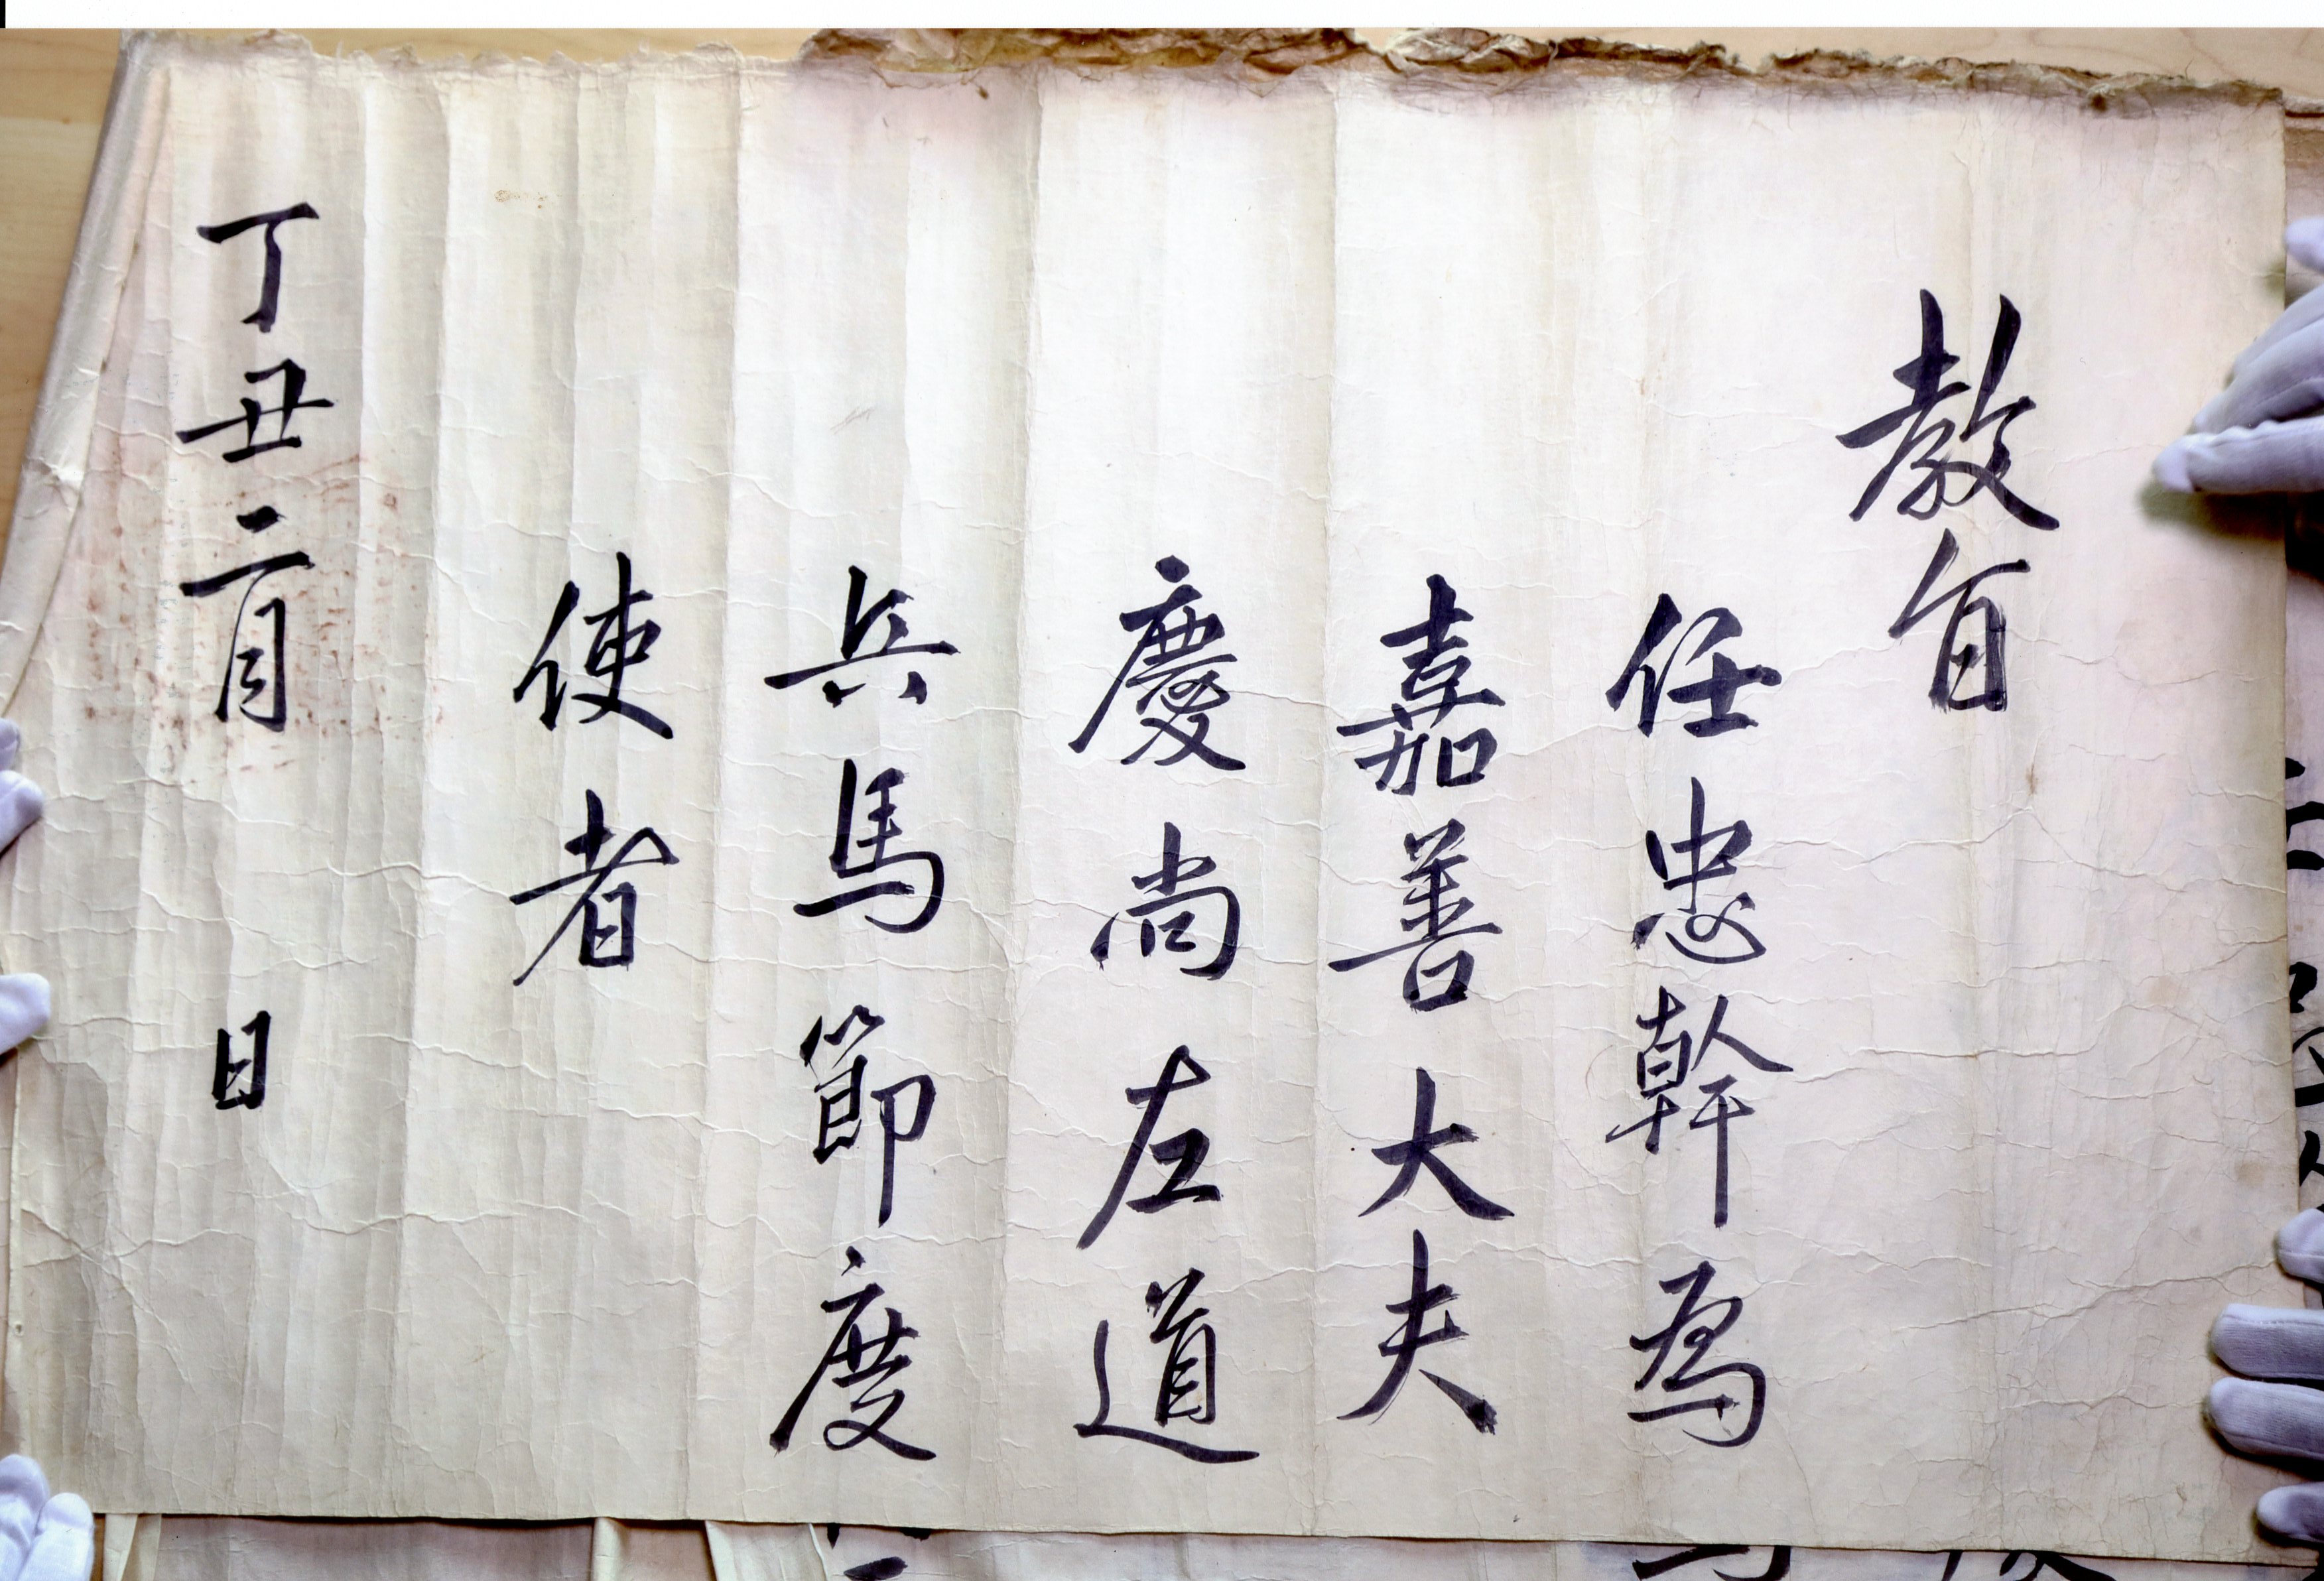 教旨
任忠幹爲
嘉善大夫
慶尚左道
兵馬節度
使者
丁丑二月 日